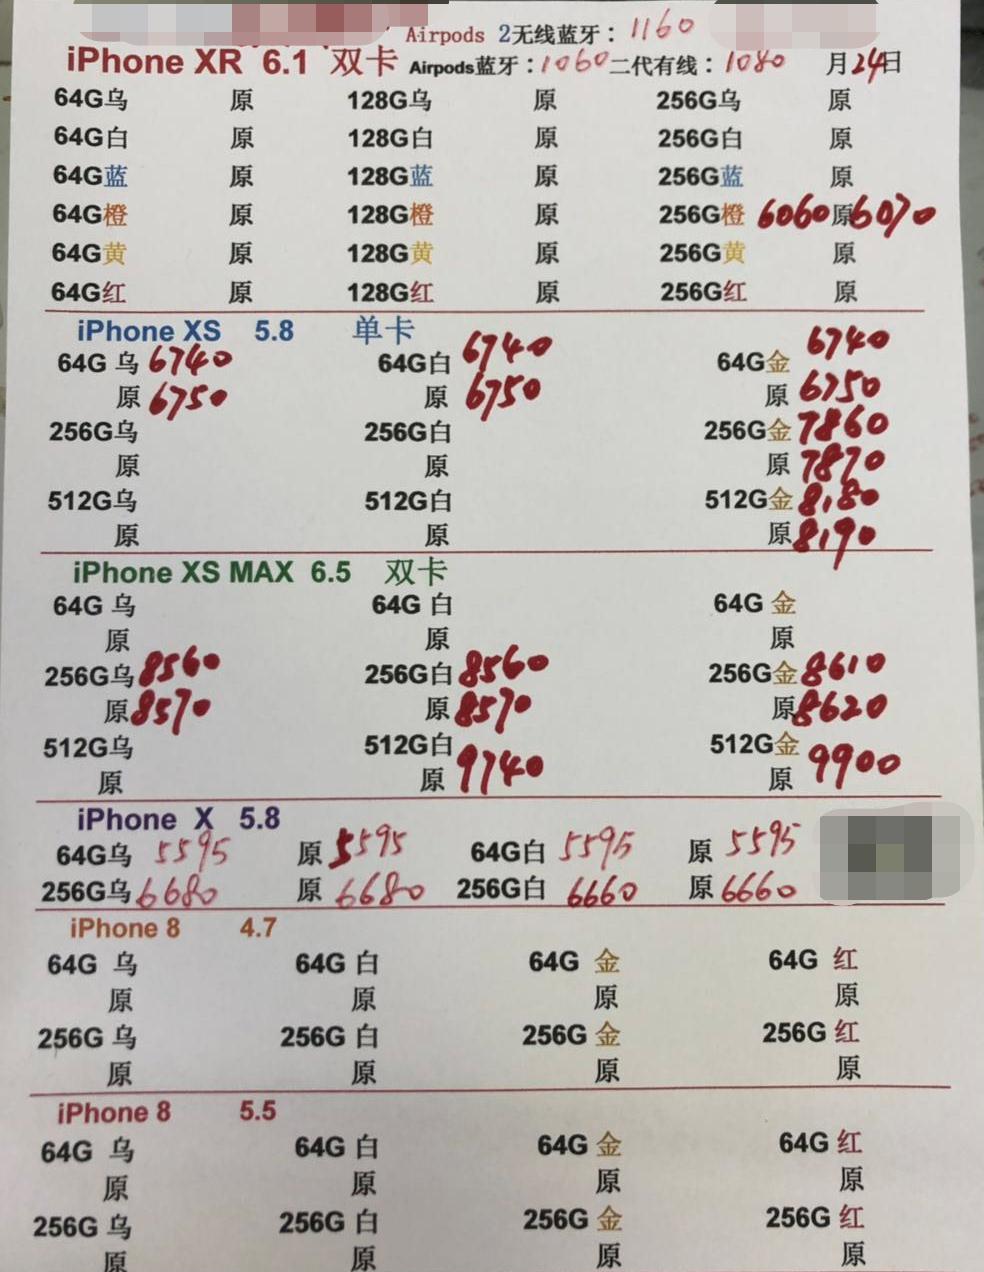 Airpods 2无线蓝牙：1160
iPhone XR 6.1 双卡 Airpods蓝牙：1060 二代有线：1080 月24日
64G乌 原 128G乌 原 256G乌 原
64G白 原 128G白 原 256G白 原
64G蓝 原 128G蓝 原 256G蓝 原
64G橙 原 128G橙 原 256G橙 6060 原 6070
64G黄 原 128G黄 原 256G黄 原
64G红 原 128G红 原 256G红 原
iPhone XS 5.8 单卡
64G 乌 6740 64G白 6740 64G金 6740
原 6750 原 6750 原 6750
256G乌 256G白 256G金 7860
原 原 原 7870
512G乌 512G白 512G金 8180
原 原 原 8190
iPhone XS MAX 6.5 双卡
64G 乌 64G 白 64G 金
原 原 原
256G乌 8560 256G白 8560 256G金 8610
原 8570 原 8570 原 8620
512G乌 512G白 512G金
原 原 9740 原 9900
iPhone X 5.8
64G乌 5595 原 5595 64G白 5595 原 5595
256G乌 6680 原 6680 256G白 6660 原 6660
iPhone 8 4.7
64G 乌 64G 白 64G 金 64G 红
原 原 原 原
256G 乌 256G 白 256G 金 256G 红
原 原 原 原
iPhone 8 5.5
64G 乌 64G 白 64G 金 64G 红
原 原 原 原
256G 乌 256G 白 256G 金 256G 红
原 原 原 原